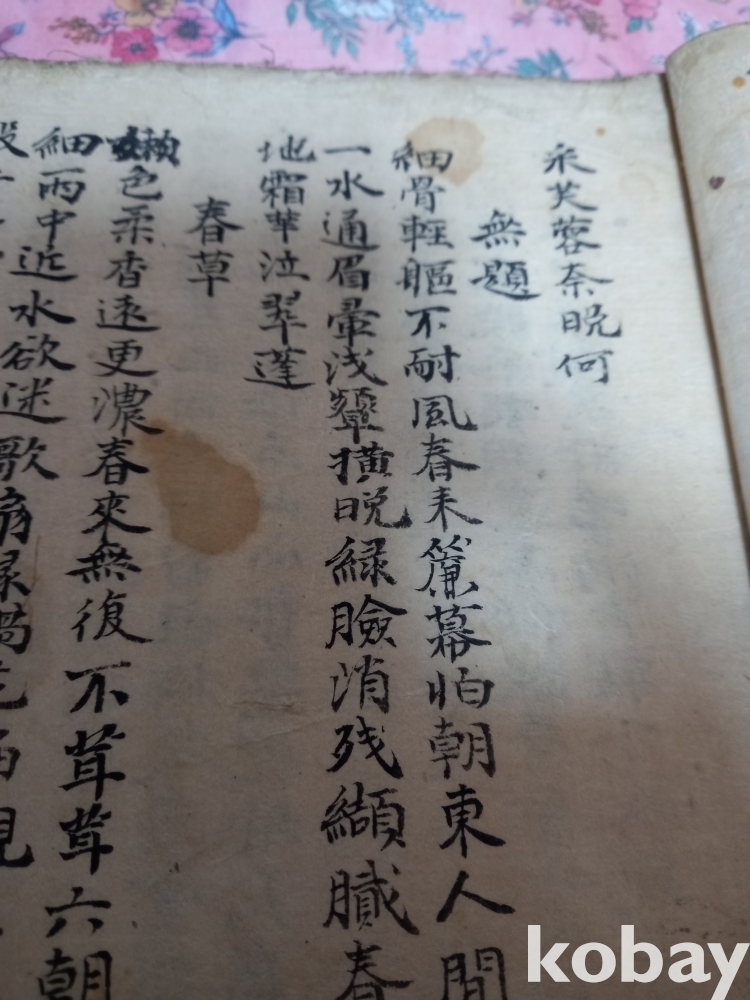 采芙蓉奈晩何
無題
細骨輕軀不耐風春来簾幕怕朝東人間
一水通眉暈浅顰橫晩緑臉消残纈膩春
地霜華泣翠蓬
春草
嫩色柔香遠更濃春來無復不茸茸六朝
細雨中近水欲迷歌
kobay